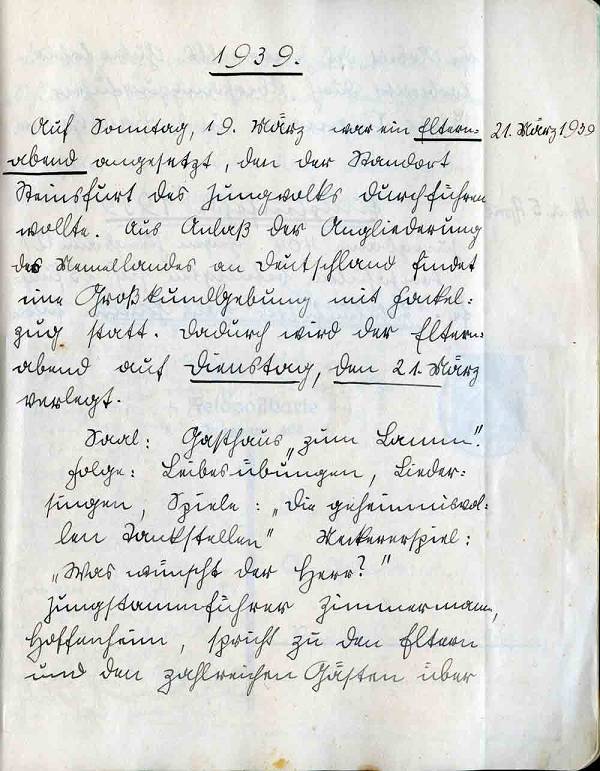 1939.
Auf Sonntag, 19. März war ein Eltern- 21. März 1939
abend angesetzt, den der Standort
Steinsfurt des Jungvolks durchführen
wollte. Aus Anlaß der Angliederung
des Memellandes an Deutschland findet
eine Großkundgebung mit Fackel-
zug statt. Dadurch wird der Eltern-
abend auf Dienstag, den 21. März
verlegt.
Saal: Gasthaus „zum Lamm".
Folge: Leibesübungen, Lieder-
singen, Spiele: „Die geheimnisvol-
len Tankstellen" Meckererspiel:
„Was wünscht der Herr?"
Jungstammführer Zimmermann,
Hoffenheim, spricht zu den Eltern
und den zahlreichen Gästen über